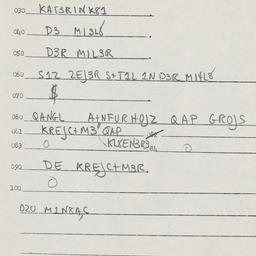 030 KAT3RINK81
040 D3 MI3L8
050 D3R MIL3R
060 S1Z ZEJ3R S+T1L 1ND3R MI4L8
070 $
080 QANGL A+NFURHOJZ QAP GROJS
082 KREJC+M3' QAP
083 O KLKEN3R3 O
090 DE KREJC+M3R.
O
100
020 M1N8A,C